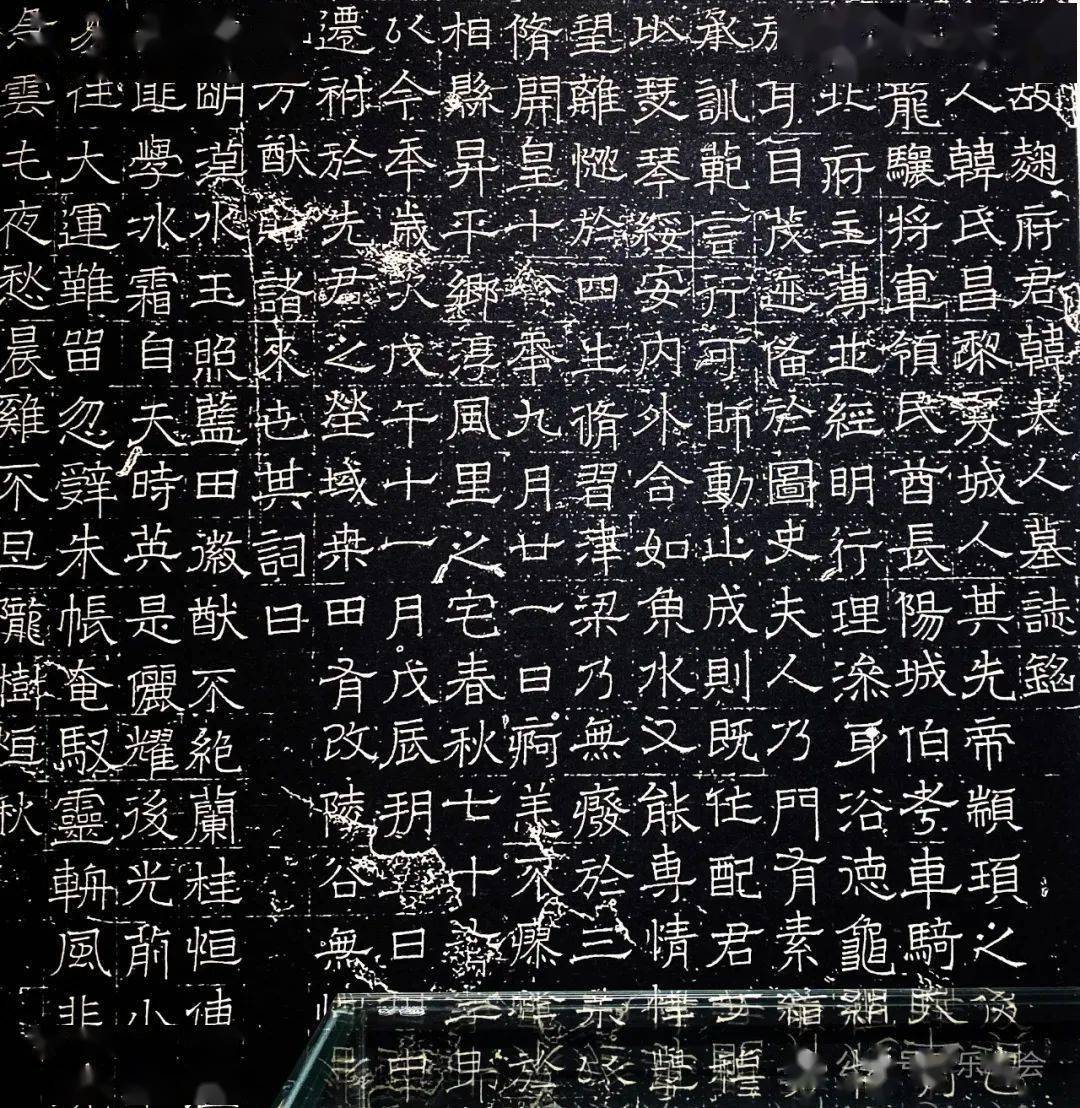 故麹府君韓夫人墓誌銘
人韓氏昌黎夏城人其先帝顓頊之後也
龍驤將軍領民酋長陽城伯考車騎
北府主薄並經明行理澡身浴德龜組
方耳自茂迹俻於圖史夫人乃門有素
承訓範言行可師動止成則既往配君
比瑟琴綏安內外合如魚水又能專情
望離愆於四生脩習津梁乃無癈於三業以
隋開皇十八年九月廿一日痾恙不瘳薨於
相縣昇平鄉淳風里之宅春秋七十
以今年歲次戊午十一月戊辰朔日申
遷祔於先君之塋域桒田有改陵谷無
万猷貽諸來世其詞曰
明漢水玉照藍田徽猷不絕蘭桂恒傳
匪學冰霜自天時英是儷耀後光前小
往大運難留忽辭朱帳奄馭靈輀風非
雲七夜愁晨雞不旦隴樹恒秋